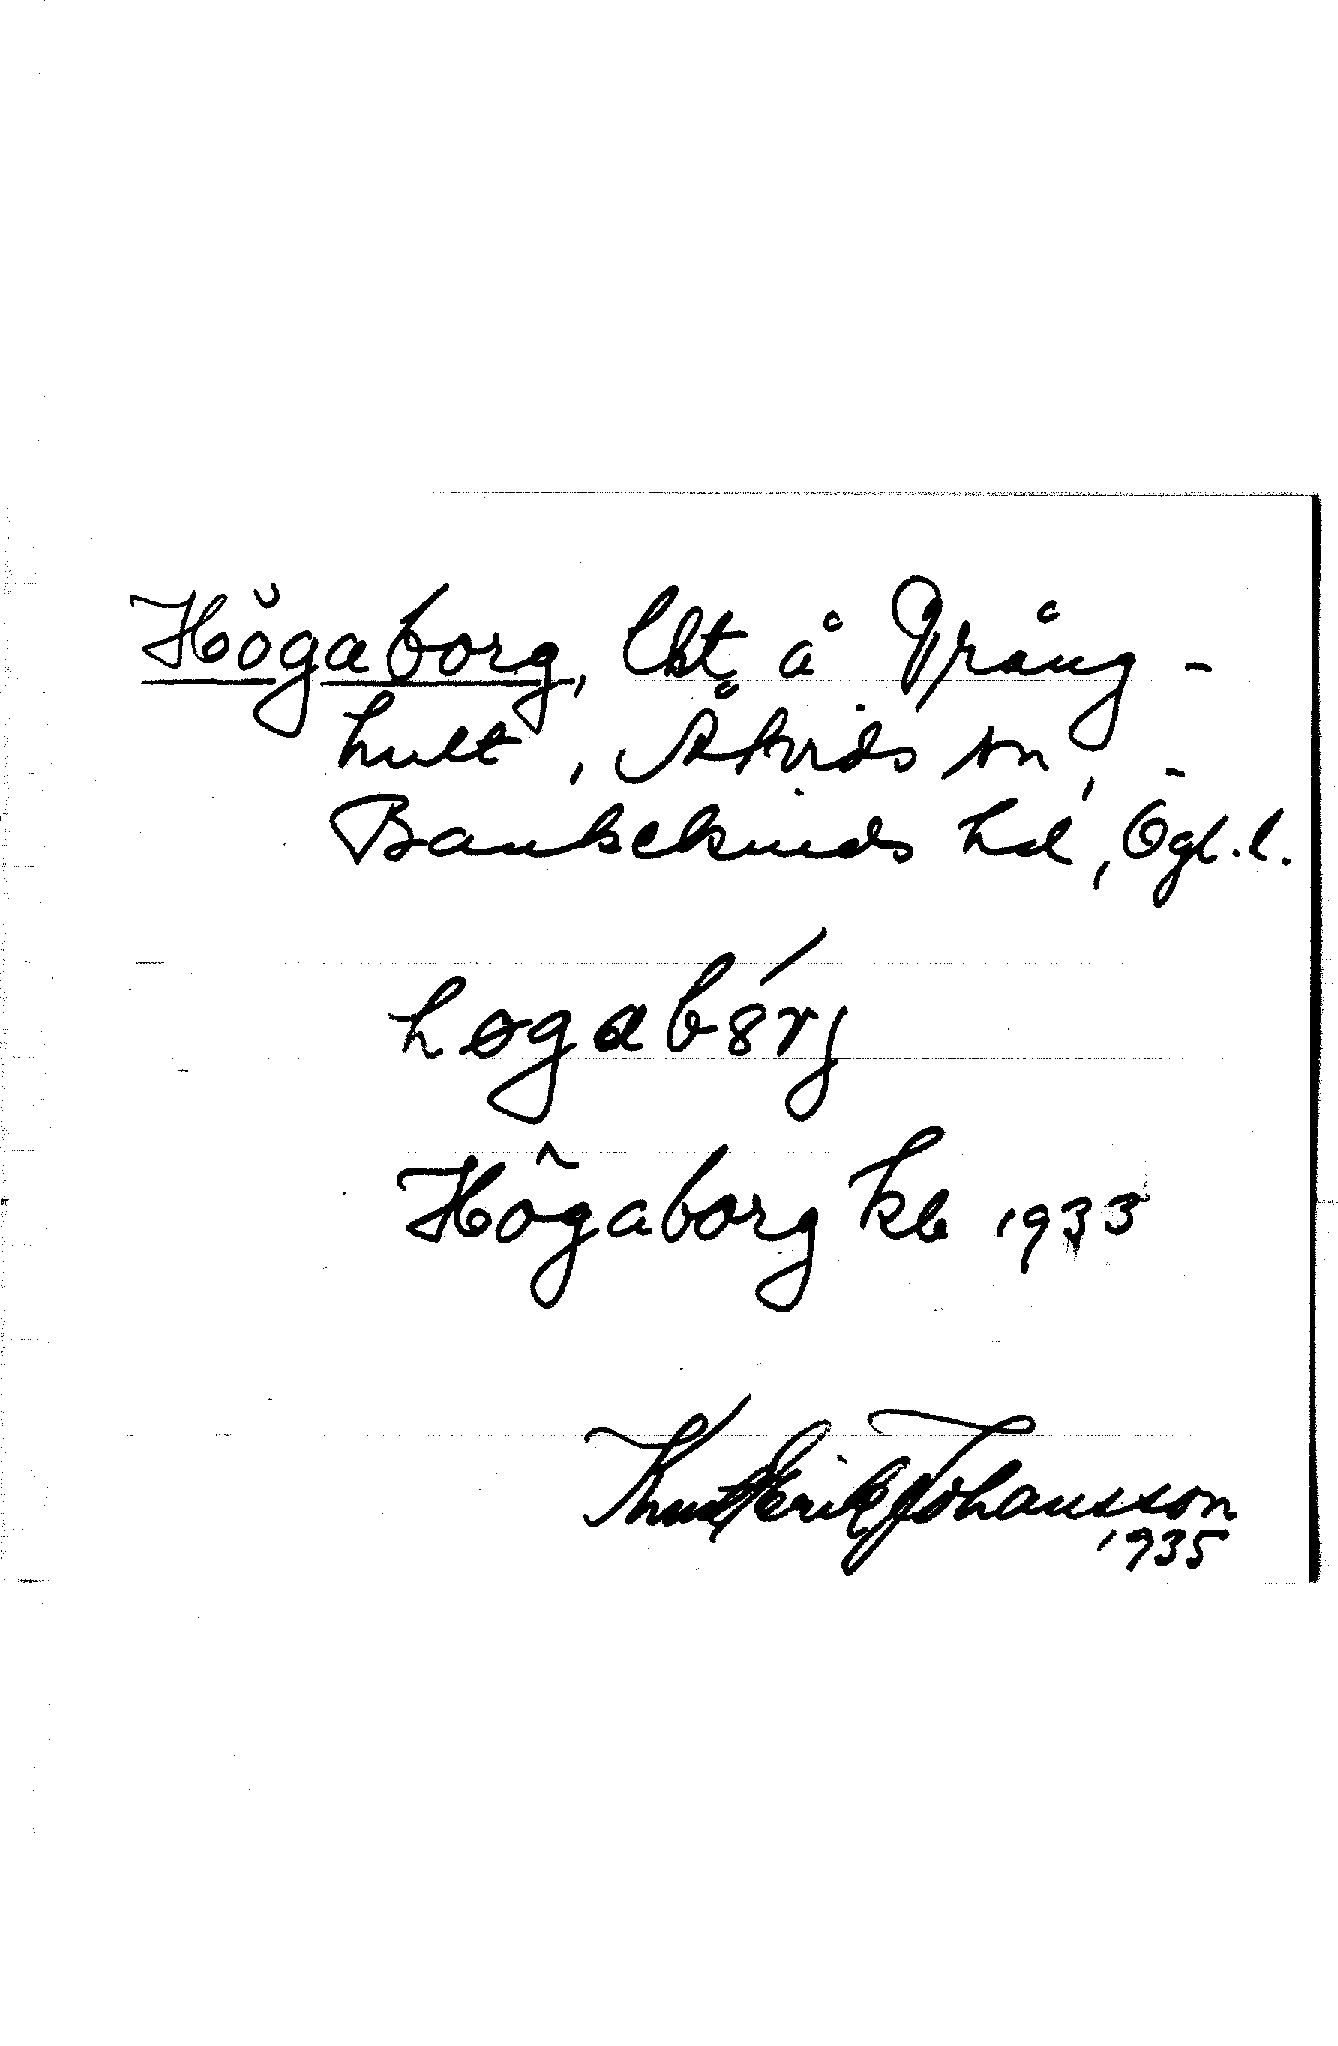 Högaborg, lht å Vrång-
hult, Åtvids sn,
Bankekinds hd, Ögl. l.
høgabɷ́rj
Högaborg kb 1933
Knut Erik Johansson
1935